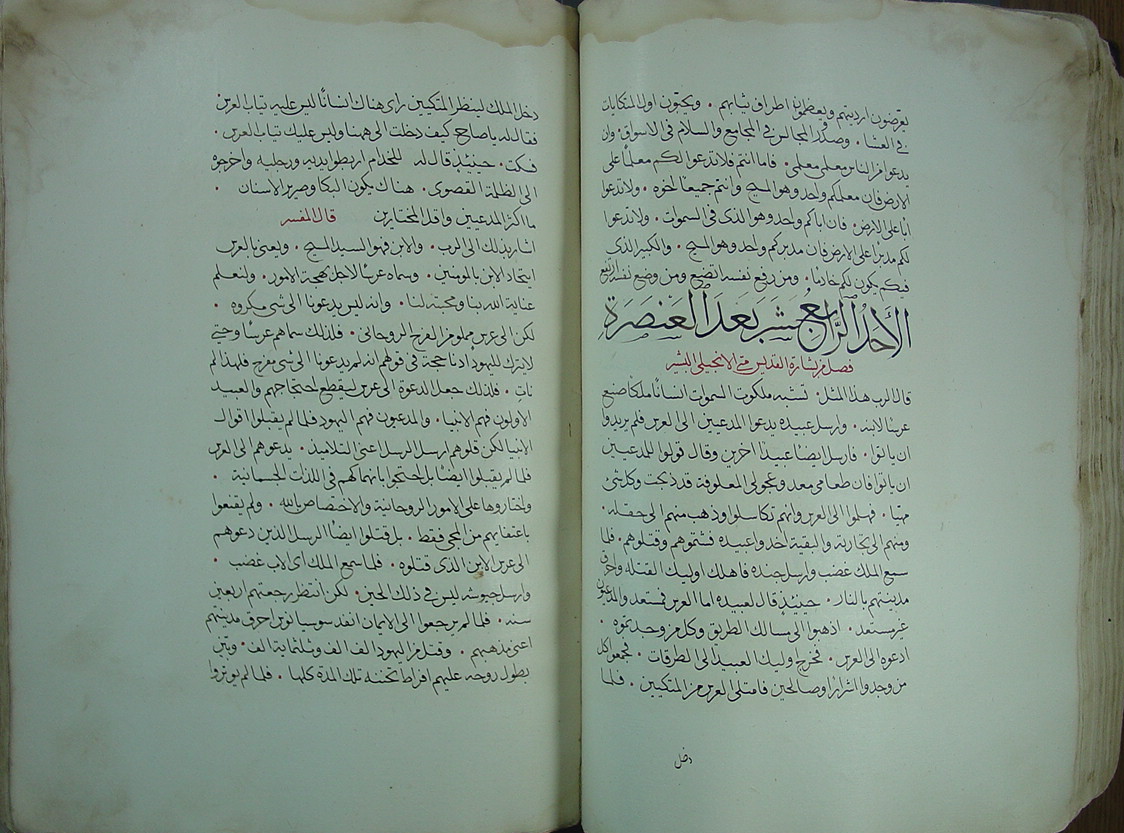 يعرضون ارديتهم ويعظموان اطراف ثيابهم • ويحبون اول المتكايات
في العشا • وصدر المجالس في المجامع والسلام في الاسواق • وان
يدعوا من الناس معلمي معلمي • فاما انتم فلا تدعوا لكم معلمًا على
الارض فان معلمكم واحد وهو المسيح وانتم جميعًا اخوه • ولا تدعوا
ابًا على الارض • فان اباكم واحد وهو الذي في السموات • ولا تدعوا
لكم مدبرًا على الارض فان مدبركم واحد وهو المسيح • والكبير الذي
فيكم يكون لكم خادمًا • ومن رفع نفسه اتضع ومن وضع نفسه ارتفع
الأحد الرابع عشر بعد العنصرة
فصل من بشارة القديس متى الانجيلي البشير
قال الرب هذا المثل • تشبه ملكوت السموات انسانًا ملكًا صنع
عرسًا لابنه • وارسل عبيده يدعوا المدعيين الى العرس فلم يريدوا
ان ياتوا • فارسل ايضًا عبيدًا اخرين وقال قولوا للمدعيين
ان ياتوا فان طعامي معد وعجولي المعلوفة قد ذبحت وكل شي
مهيا • فهلموا الى العرس وانهم تكاسلوا وذهب منهم الى حقله •
ومنهم الى تجارته والبقية اخذوا عبيده فشتموهم وقتلوهم • فلما
سمع الملك غضب وارسل جنده فاهلك اوليك القتله واحرق
مدينتهم بالنار • حينيذٍ قال لعبيده اما العرس فمستعد والمدعون
غير مستعد • اذهبوا الى مسالك الطريق وكل من وجدتموه •
ادعوه الى العرس • فخرج اوليك العبيد الى الطرقات • فجمعوا كل
من وجدوا اشرارًا وصالحين فامتلى العرس من المتكيين • فلما
دخل
دخل الملك لينظر المتكيين راى هناك انسانًا ليس عليه ثياب العرس
فقال له يا صاح كيف دخلت الى ههنا وليس عليك ثياب العرس •
فسكت • حينيذٍ قال له للخدام اربطوا يديه ورجليه واخرجوه
الى الظلمة القصوى • هناك يكون البكا وصرير الاسنان •
ما اكثر المدعيين واقل المختارين قال المفسر
اشار بذلك الى الرب • والابن فهو السيد المسيح • ويعني بالعرس
ايتحاد الابن بالمومنين • وسماه عرسًا لاجل بهجة الامور • ولنعلم
عناية الله بنا ومحبته لنا • وانه ليس يدعونا الى شي مكروه •
لكن الى عرس مملو من الفرح الروحاني • فلذلك سماهم عرسًا وحتى
لا يترك لليهود ادنا حجة في قولهم انه لم يدعونا الى شي مفرح فلهذا لم
نات • فلذلك جعل الدعوة الى عرس ليقطع احتجاجهم والعبيد
الاولون فهم الانبيا • والمدعون فهم اليهود فلما لم يقبلوا اقوال
الانبيا لكن قتلوهم ارسل الرسل اعني التلاميذ • يدعوهم الى العرس
فلما لم يقبلوا ايضًا بل احتجوا بانهماكهم في اللذات الجسمانية •
واختاروها على الامور الروحانية والاختصاص بالله • ولم يقنعوا
باعتفايهم من المجي فقط • بل قتلوا ايضًا الرسل الذين دعوهم
الى عرس الابن الذي قتلوه • فلما سمع الملك اي الاب غضب •
وارسل جيوشه ليس في ذلك الحين • لكن انتظر رجعتهم اربعين
سنه • فلما لم يرجعوا الى الايمان انفد سوسيانوس احرق مدينتهم
اعني مذهبهم • وقتل من اليهود الف الف وثلثماية الف • وتبين
بطول روحه عليهم افراط تحننه تلك المدة كلها • فلما لم يوثروا